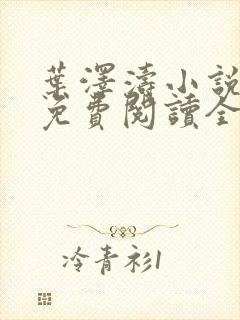 葉澤濤小說
免費閱讀全
冷青衫1